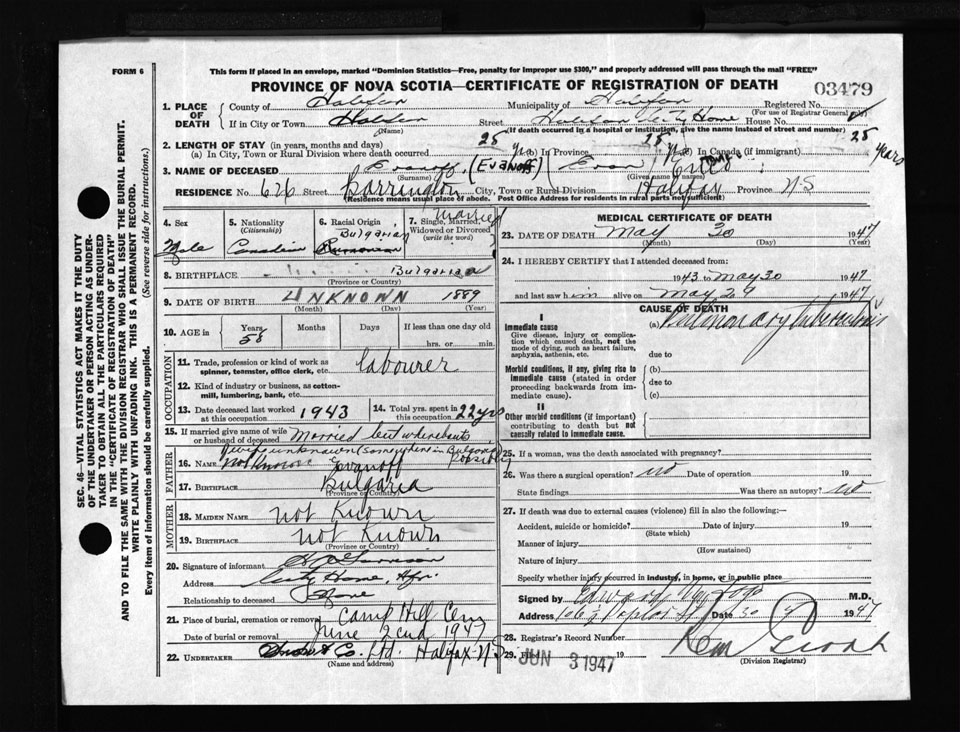 FORM 6
This form if placed in an envelope, marked "Dominion Statistics—Free, penalty for improper use $300," and properly addressed will pass through the mail "FREE"
PROVINCE OF NOVA SCOTIA—CERTIFICATE OF REGISTRATION OF DEATH
03479
1. PLACE OF DEATH
County of Halifax Municipality of Halifax Registered No.
(For use of Registrar General only)
If in City or Town Halifax Street Halifax City Home House No.
(Name) (If death occurred in a hospital or institution, give the name instead of street and number)
2. LENGTH OF STAY (in years, months and days)
(a) In City, Town or Rural Division where death occurred 25 yrs (b) In Province 25 yrs (c) In Canada (if immigrant) 25 years
3. NAME OF DECEASED Evanoff (EVANOFF)
(Surname) (Given name or names)
RESIDENCE No. 626 Street Barrington City, Town or Rural Division Halifax Province N.S
(Residence means usual place of abode. Post Office Address for residents in rural parts not sufficient)
4. Sex
Male
5. Nationality
(Citizenship)
Canadian
6. Racial Origin
Bulgarian
7. Single, Married, Widowed or Divorced
(write the word)
Married
8. BIRTHPLACE Bulgaria
(Province or Country)
9. DATE OF BIRTH UNKNOWN 1889
(Month) (Day) (Year)
10. AGE in
Years Months Days If less than one day old
58 hrs. or min.
OCCUPATION
11. Trade, profession or kind of work as spinner, teamster, office clerk, etc. labourer
12. Kind of industry or business, as cotton-mill, lumbering, bank, etc.
13. Date deceased last worked at this occupation 1943
14. Total yrs. spent in this occupation 22 yrs
15. If married give name of wife or husband of deceased Married but whereabouts
of wife unknown (somewhere in Bulgaria possibly)
FATHER
16. Name not known Ivanoff
17. BIRTHPLACE Bulgaria
(Province or Country)
MOTHER
18. MAIDEN NAME not Known
19. BIRTHPLACE not Known
(Province or Country)
20. Signature of informant
Address City Home, Hfx.
Relationship to deceased None
21. Place of burial, cremation or removal Camp Hill Cem
Date of burial or removal June 2nd, 1947
22. UNDERTAKER Snow & Co. Ltd. Halifax N.S
(Name and address)
MEDICAL CERTIFICATE OF DEATH
23. DATE OF DEATH May 30 1947
(Month) (Day) (Year)
24. I HEREBY CERTIFY that I attended deceased from:
1943 to May 30 1947
and last saw him alive on May 29 1947
CAUSE OF DEATH
I
Immediate cause
Give disease, injury or complication which caused death, not the mode of dying, such as heart failure, asphyxia, asthenia, etc.
(a) Pulmonary tuberculosis
due to
Morbid conditions, if any, giving rise to immediate cause (stated in order proceeding backwards from immediate cause).
(b)
due to
(c)
II
Other morbid conditions (if important) contributing to death but not causally related to immediate cause.
25. If a woman, was the death associated with pregnancy?
26. Was there a surgical operation? no Date of operation 19
State findings Was there an autopsy? no
27. If death was due to external causes (violence) fill in also the following:—
Accident, suicide or homicide? Date of injury 19
(State which)
Manner of injury
(How sustained)
Nature of injury
Specify whether injury occurred in industry, in home, or in public place
Signed by M.D.
Address Date 30 1947
28. Registrar's Record Number
29. Filed JUN 3 1947 19
(Division Registrar)
SEC. 46—VITAL STATISTICS ACT MAKES IT THE DUTY
OF THE UNDERTAKER OR PERSON ACTING AS UNDER-
TAKER TO OBTAIN ALL THE PARTICULARS REQUIRED
IN THE "CERTIFICATE OF REGISTRATION OF DEATH"
AND TO FILE THE SAME WITH THE DIVISION REGISTRAR WHO SHALL ISSUE THE BURIAL PERMIT.
WRITE PLAINLY WITH UNFADING INK. THIS IS A PERMANENT RECORD.
Every item of information should be carefully supplied. (See reverse side for instructions.)